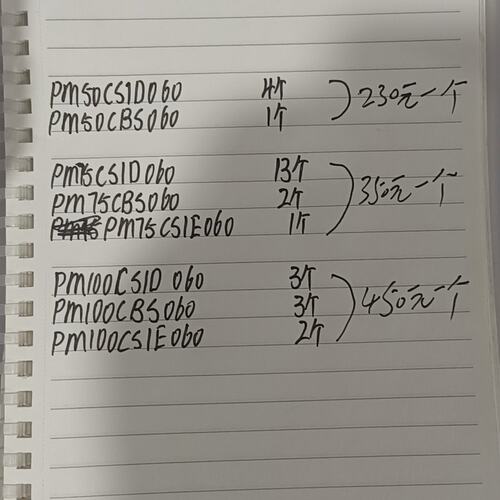 PM50CS1D060 4个
230元一个
PM50CBS060 1个
PM75CS1D060 13个
PM75CBS060 2个
350元一个
PM75CS1E060 1个
PM100CS1D 060 3个
PM100CBS060 3个
450元一个
PM100CS1E060 2个